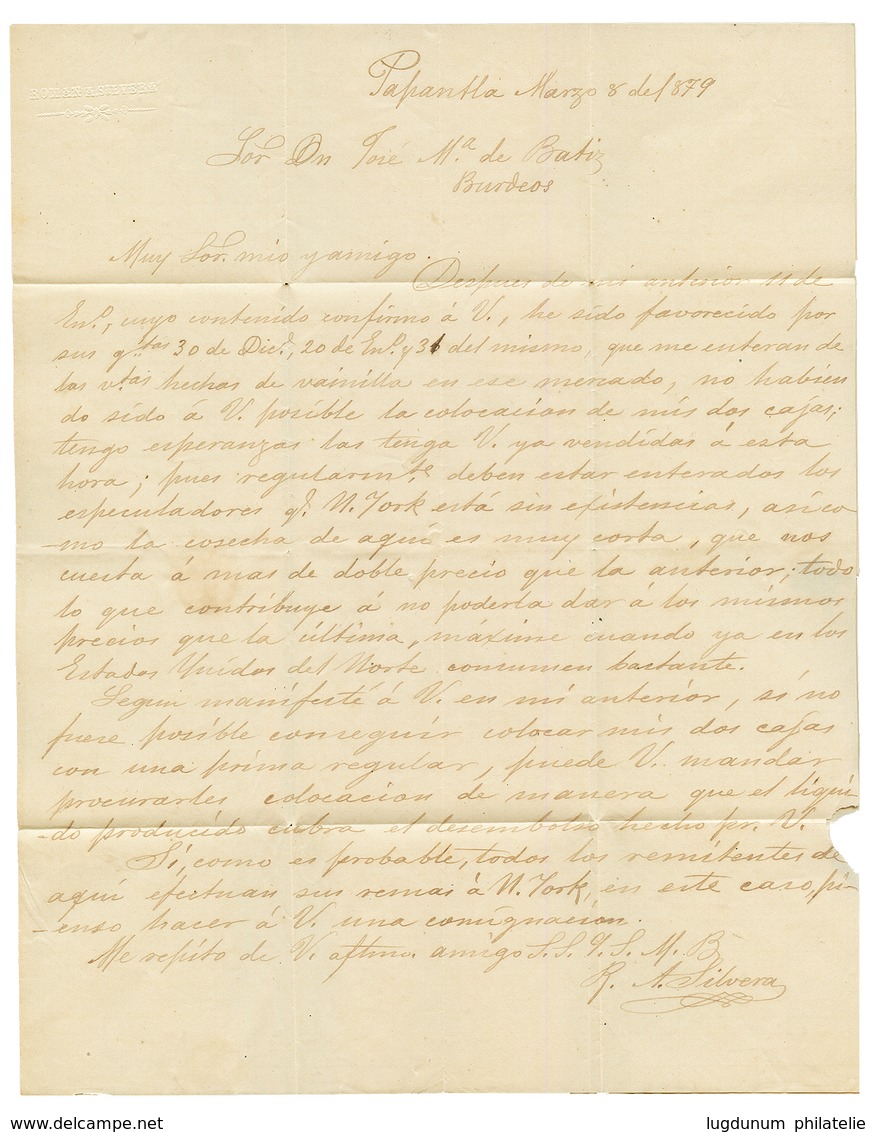 ROMAN A. SILVERA
Papantla Marzo 8 de 1879
Sor. Dn José Ma. de Batiz
Burdeos
Muy Sor. mio y amigo.
Despues de mi anterior 11 de
Eno., cuyo contenido confirmo á V., he sido favorecido por
sus gtas 30 de Dice., 20 de Eno. y 31 del mismo, que me enteran de
las vtas hechas de vainilla en ese mercado, no habien
do sido á V. posible la colocacion de mis dos cajas;
tengo esperanzas las tenga V. ya vendidas á esta
hora; pues regularmte. deben estar enterados los
especuladores q. N. York está sin existencias, asi co
-mo la cosecha de aquí es muy corta, que nos
cuesta á mas de doble precio que la anterior; todo
lo que contribuye á no poderla dar á los mismos
precios que la última, máxime cuando ya en los
Estados Unidos del Norte consumen bastante.
Segun manifesté á V. en mi anterior, si no
fuere posible conseguir colocar mis dos cajas
con una prima regular, puede V. mandar
procurarles colocacion de manera que el liqui-
-do producido cubra el desembolso hecho pr. V.
Si, como es probable, todos los remitentes de
aquí efectuan sus remas á N. York, en este caso, pi-
-enso hacer á V. una consignación.
Me repito de V. aftmo. amigo S. S. Q. S. M. B
R. A. Silvera
www.delcampe.net
lugdunum philatelie